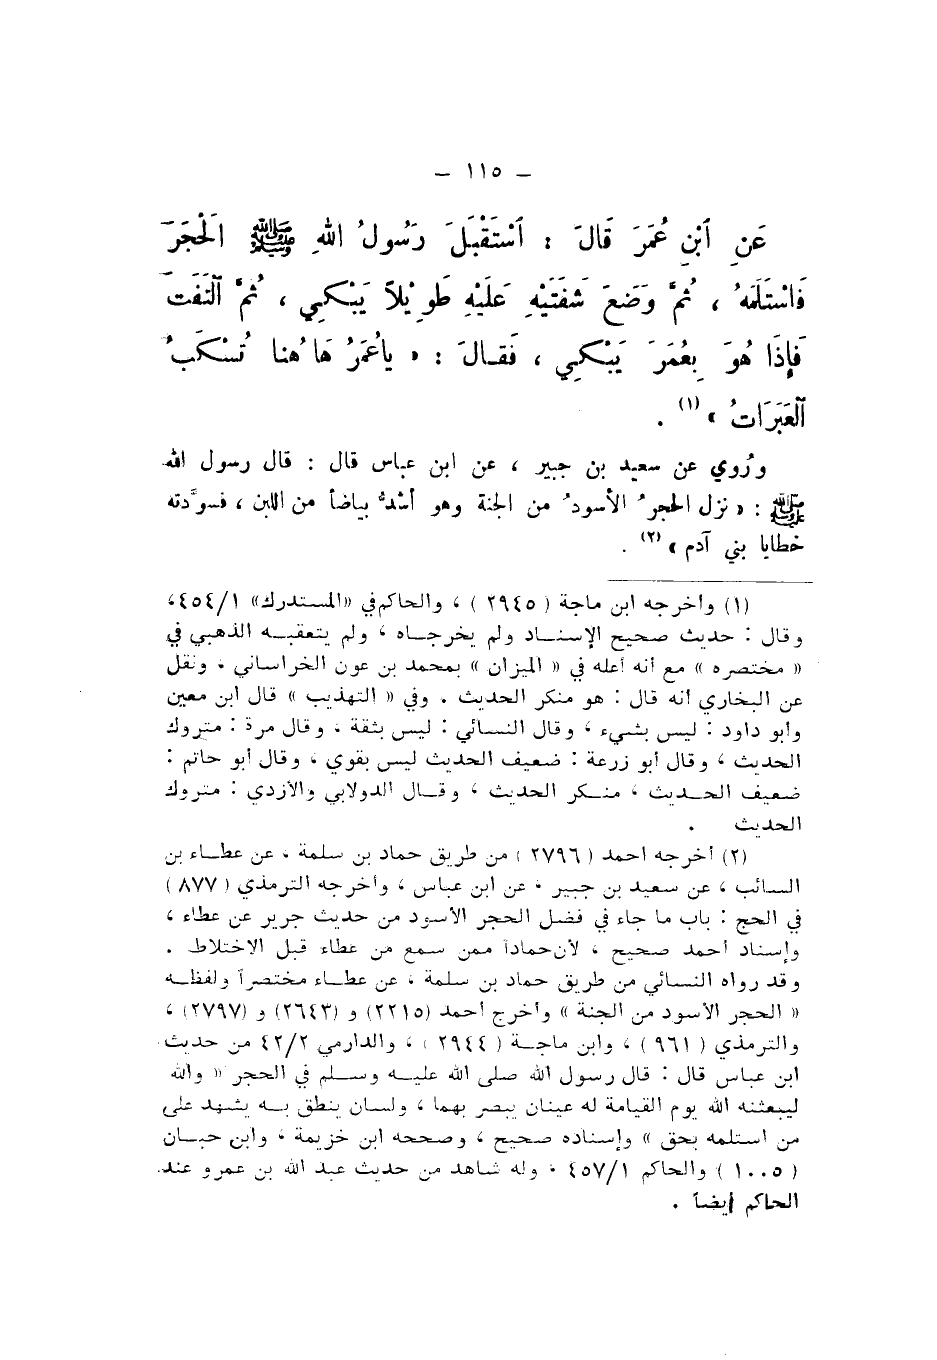 – ١١٥ –
عَنِ ٱبْنِ عُمَرَ قَالَ : ٱسْتَقْبَلَ رَسُولُ اللهِ ﷺ الْحَجَرَ
فَاسْتَلَمَهُ ، ثُمَّ وَضَعَ شَفَتَيْهِ عَلَيْهِ طَوِيْلاً يَبْكِي ، ثُمَّ ٱلْتَفَتَ
فَإِذَا هُوَ بِعُمَرَ يَبْكِي ، فَقَالَ : « يَاعُمَرُ هَاهُنا تُسْكَبُ
ٱلعَبَرَاتُ » (١) .
ورُوي عن سعيد بن جبير ، عن ابن عباس قال : قال رسول الله
ﷺ : « نزل الحجرُ الأسودُ من الجنة وهو أشدُّ بياضاً من اللبن ، فسوَّدته
خطايا بني آدم » (٢) .
(١) وأخرجه ابن ماجة ( ٢٩٤٥ ) ، والحاكم في «المستدرك» ٤٥٤/١،
وقال : حديث صحيح الإسناد ولم يخرجاه ، ولم يتعقبه الذهبي في
« مختصره » مع أنه أعله في « الميزان » بمحمد بن عون الخراساني ، ونقل
عن البخاري أنه قال : هو منكر الحديث . وفي « التهذيب » قال ابن معين
وأبو داود : ليس بشيء ، وقال النسائي : ليس بثقة ، وقال مرة : متروك
الحديث ، وقال أبو زرعة : ضعيف الحديث ليس بقوي ، وقال أبو حاتم :
ضعيف الحديث ، منكر الحديث ، وقال الدولابي والأزدي : متروك
الحديث .
(٢) أخرجه أحمد ( ٢٧٩٦ ) من طريق حماد بن سلمة ، عن عطاء بن
السائب ، عن سعيد بن جبير ، عن ابن عباس ، وأخرجه الترمذي ( ٨٧٧ )
في الحج : باب ما جاء في فضل الحجر الأسود من حديث جرير عن عطاء ،
وإسناد أحمد صحيح ، لأن حماداً ممن سمع من عطاء قبل الاختلاط .
وقد رواه النسائي من طريق حماد بن سلمة ، عن عطاء مختصراً ولفظه
« الحجر الأسود من الجنة » وأخرج أحمد (٢٢١٥) و (٢٦٤٣) و (٢٧٩٧) ،
والترمذي ( ٩٦١ ) ، وابن ماجة ( ٢٩٤٤ ) ، والدارمي ٤٢/٢ من حديث
ابن عباس قال : قال رسول الله صلى الله عليه وسلم في الحجر « والله
ليبعثنه الله يوم القيامة له عينان يبصر بهما ، ولسان ينطق به يشهد على
من استلمه بحق » وإسناده صحيح ، وصححه ابن خزيمة ، وابن حبان
( ١٠٠٥ ) والحاكم ٤٥٧/١ ، وله شاهد من حديث عبد الله بن عمرو عند
الحاكم أيضاً .